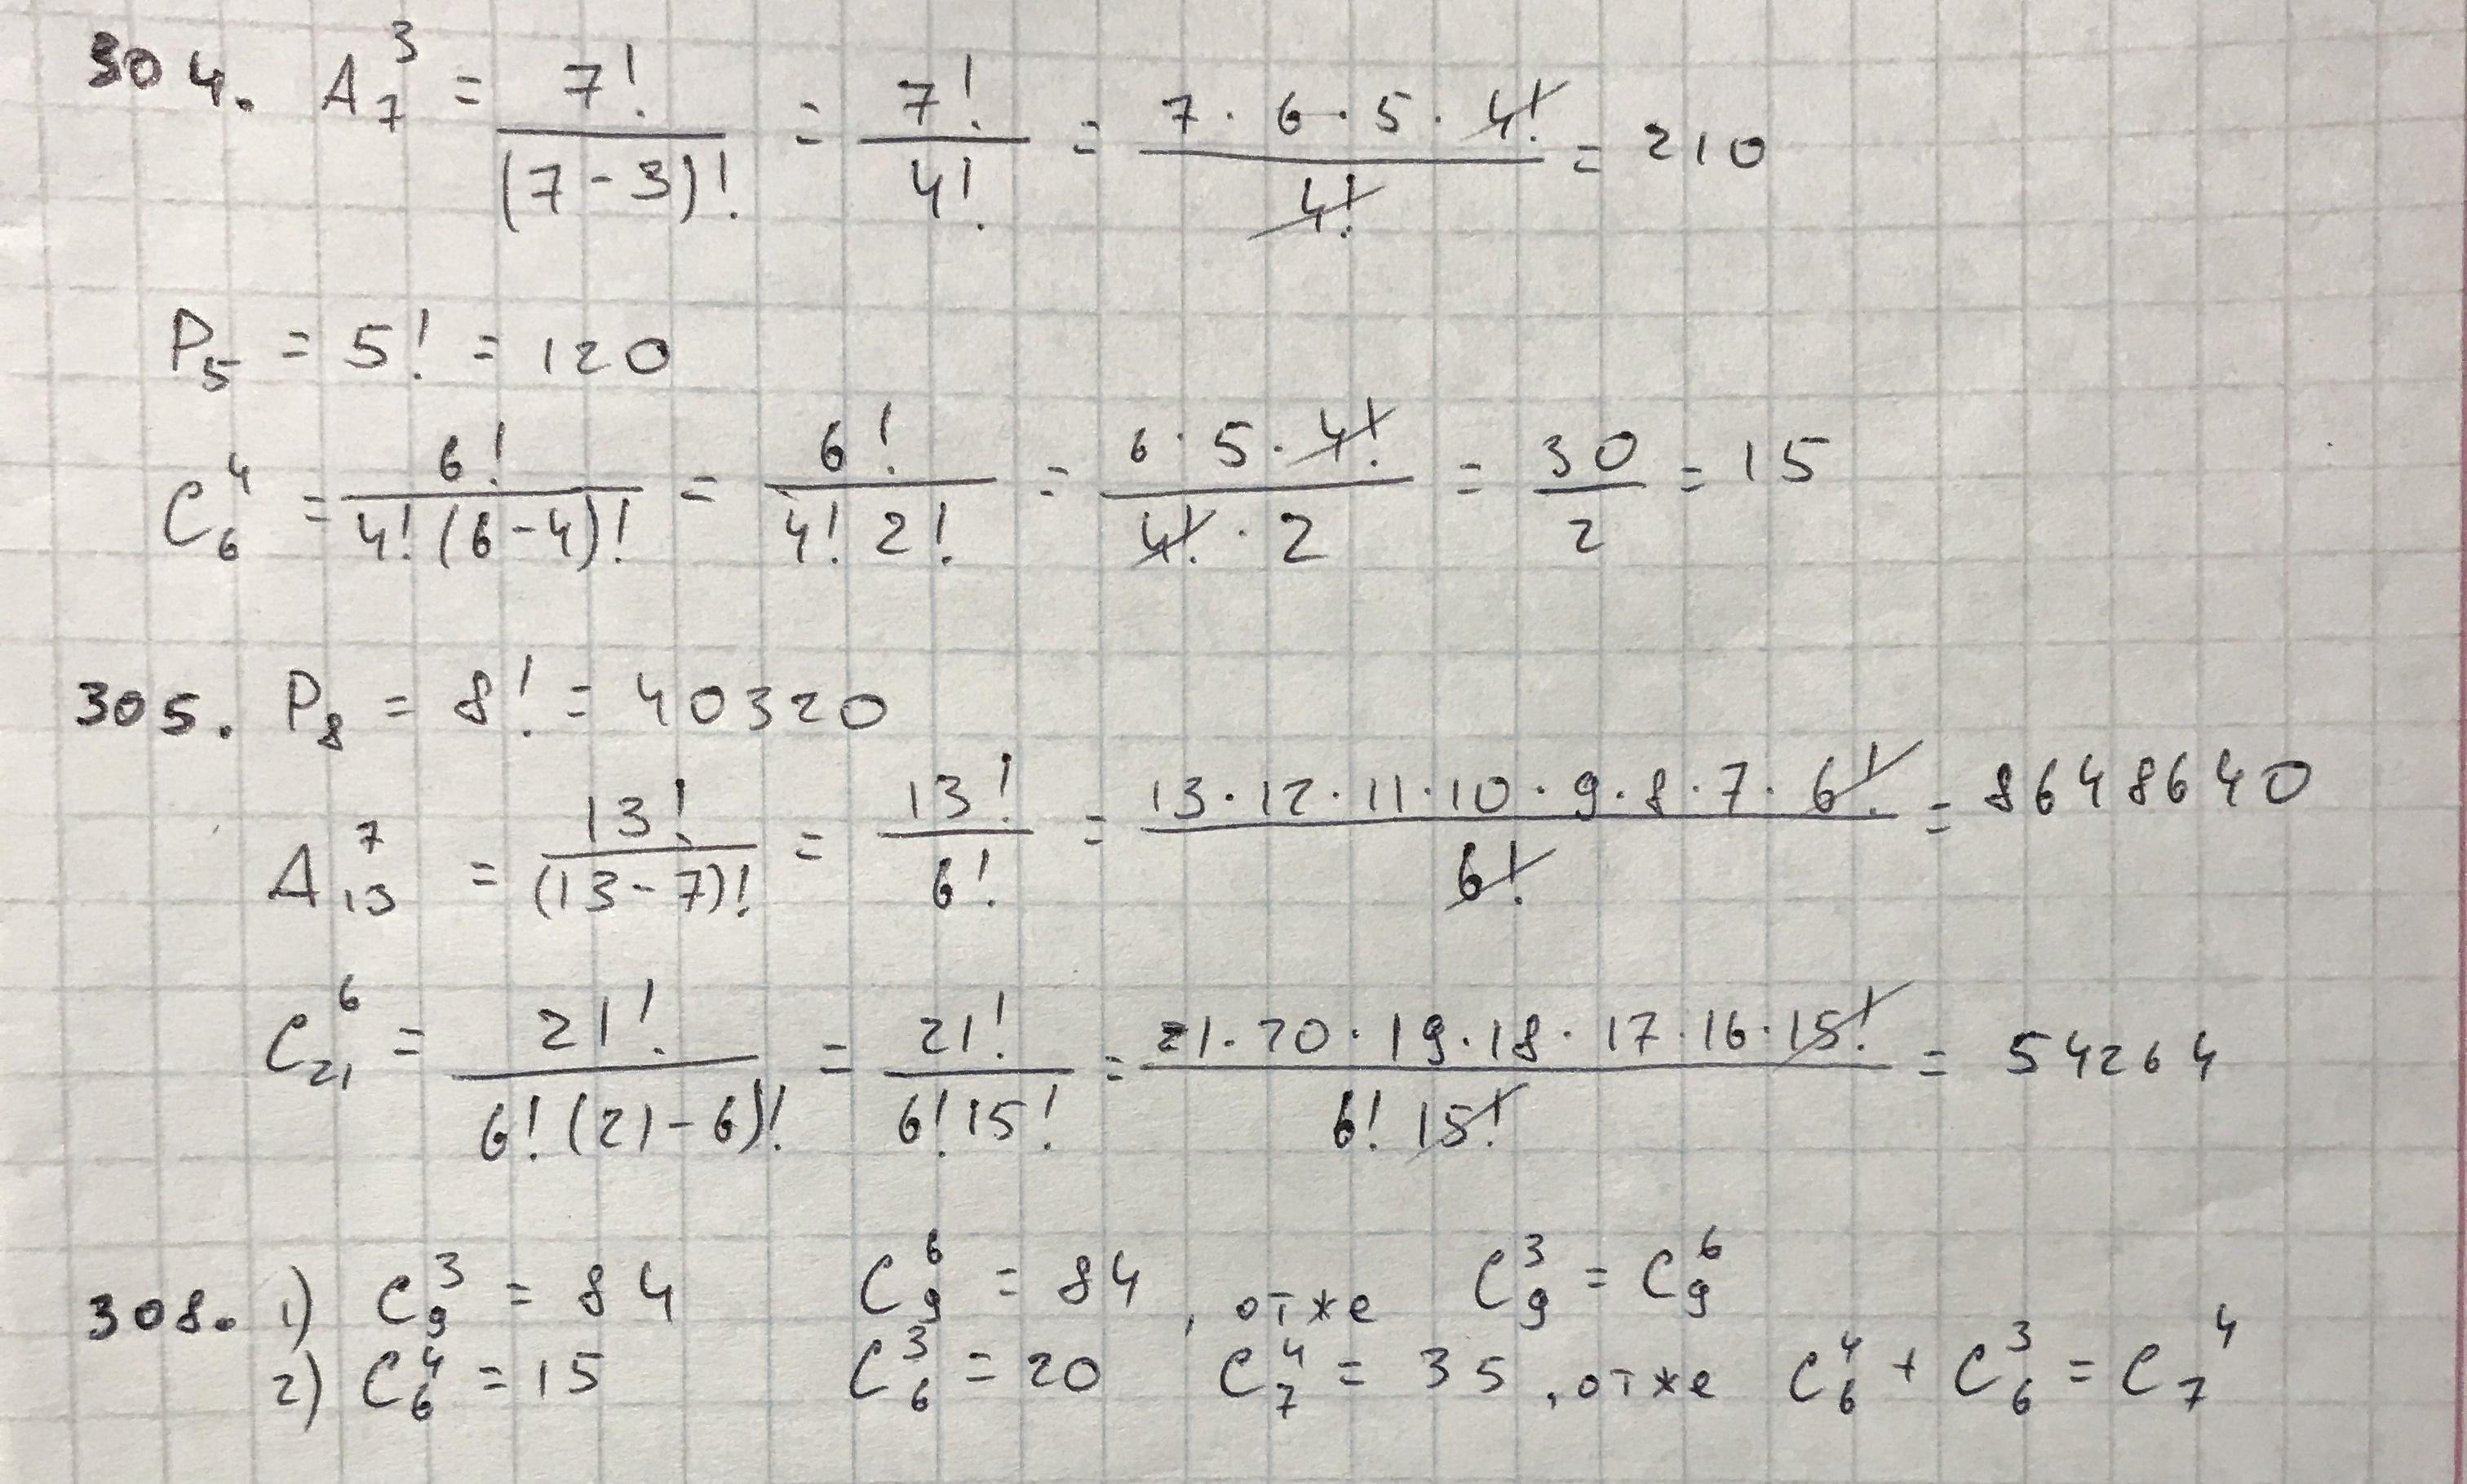 304. A₇³ = 7!/(7-3)! = 7!/4! = 7·6·5·4!/4! = 210
P₅ = 5! = 120
C₆⁴ = 6!/4!(6-4)! = 6!/4!2! = 6·5·4!/4!·2 = 30/2 = 15
305. P₈ = 8! = 40320
A₁₃⁷ = 13!/(13-7)! = 13!/6! = 13·12·11·10·9·8·7·6!/6! = 8648640
C₂₁⁶ = 21!/6!(21-6)! = 21!/6!15! = 21·20·19·18·17·16·15!/6!15! = 54264
308. 1) C₉³ = 84 C₉⁶ = 84, отже C₉³ = C₉⁶
2) C₆⁴ = 15 C₆³ = 20 C₇⁴ = 35, отже C₆⁴ + C₆³ = C₇⁴